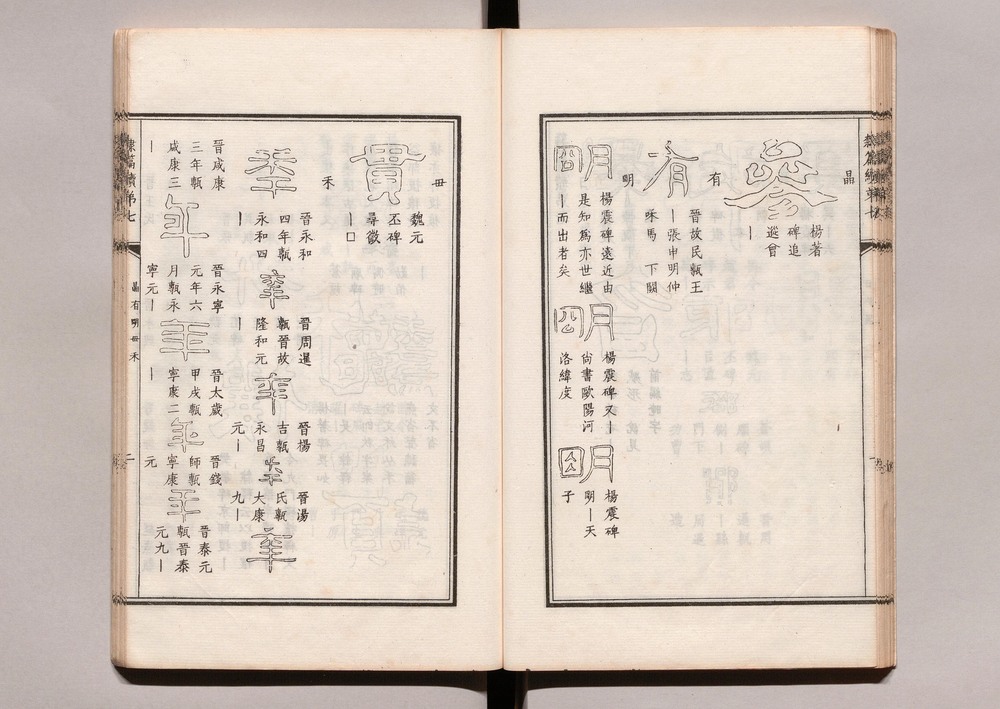 晶
參
楊著
碑追
遊曾
｜
有
有
晉故民甎王
｜張申明仲
秣馬　下關
明
明
楊震碑遠近由
是知爲亦世繼
｜而出者矣
明
楊震碑又｜
尙書歐陽河
洛緯度
明
楊震碑
明｜天
子
毌
貫
魏元
丕碑
尋徵
｜□
禾
年
晉永和
四年甎
永和四
｜
年
晉周暹
甎晉故
隆和元
｜
年
晉楊
吉甎
永昌
元｜
年
晉湯
氏甎
大康
九｜
年
晉咸康
三年甎
咸康三
｜
年
晉永寧
元年六
月甎永
寧元｜
年
晉太歲
甲戌甎
寧康二
｜
年
晉錢
師甎
寧康
元
年
晉泰元
甎晉泰
元九｜
隸篇續第七
晶有明毌禾